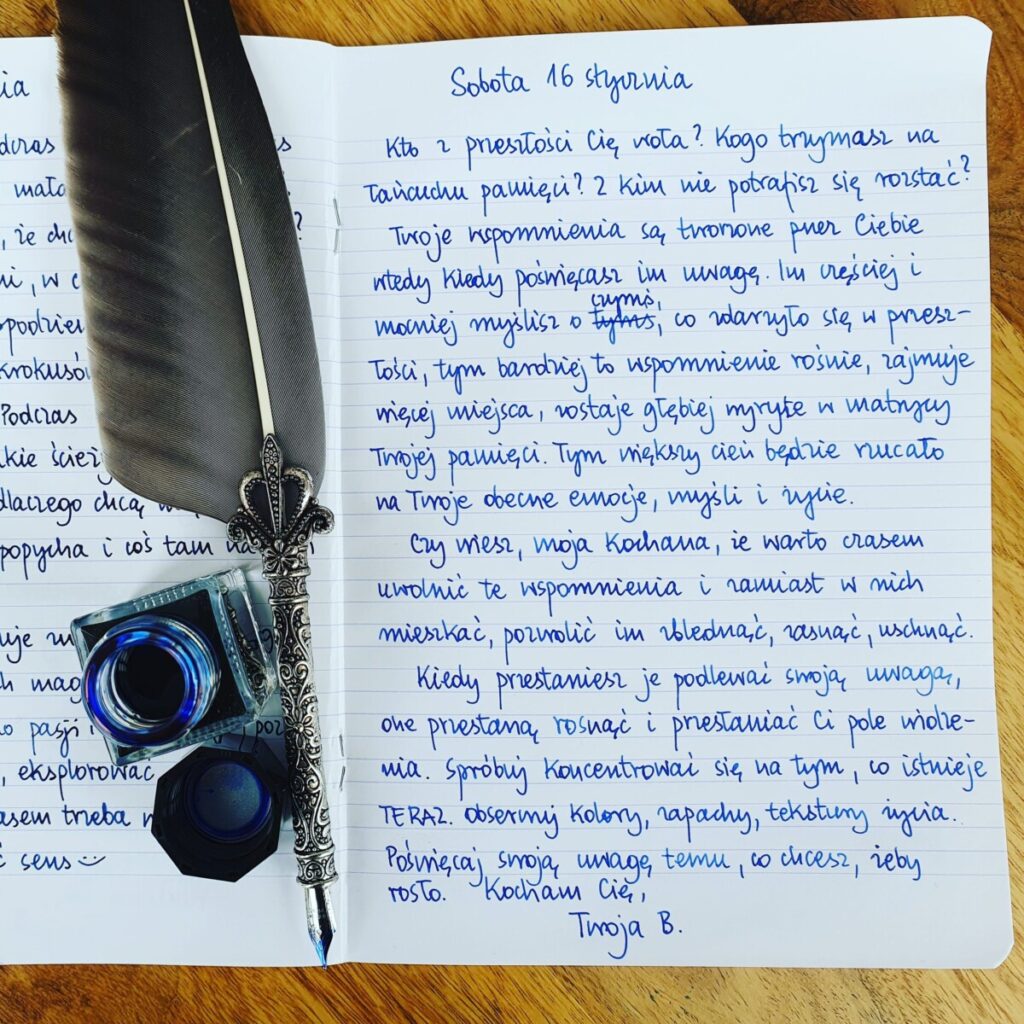 ia
dczas
s
mało
, że chc
?
ni, w c
podzien
krokusów
Podczas
kie ścież
dlaczego chcą
popycha i coś tam na
uje
h mag
o pasji i
, eksplorować
asem trzeba
ć sens
Sobota 16 stycznia
Kto z przeszłości Cię woła? Kogo trzymasz na
łańcuchu pamięci? Z kim nie potrafisz się rozstać?
Twoje wspomnienia są tworzone przez Ciebie
wtedy kiedy poświęcasz im uwagę. Im częściej i
czymś,
mocniej myślisz o tymś, co zdarzyło się w przesz-
łości, tym bardziej to wspomnienie rośnie, zajmuje
więcej miejsca, zostaje głębiej wyryte w matrycy
Twojej pamięci. Tym większy cień będzie rzucało
na Twoje obecne emocje, myśli i życie.
Czy wiesz, moja Kochana, że warto czasem
uwolnić te wspomnienia i zamiast w nich
mieszkać, pozwolić im zblednąć, zasnąć, uschnąć.
Kiedy przestaniesz je podlewać swoją uwagą,
one przestaną rosnąć i przesłaniać Ci pole widze-
nia. Spróbuj koncentrować się na tym, co istnieje
TERAZ. Obserwuj kolory, zapachy, tekstury życia.
Poświęcaj swoją uwagę temu, co chcesz, żeby
rosło. Kocham Cię,
Twoja B.